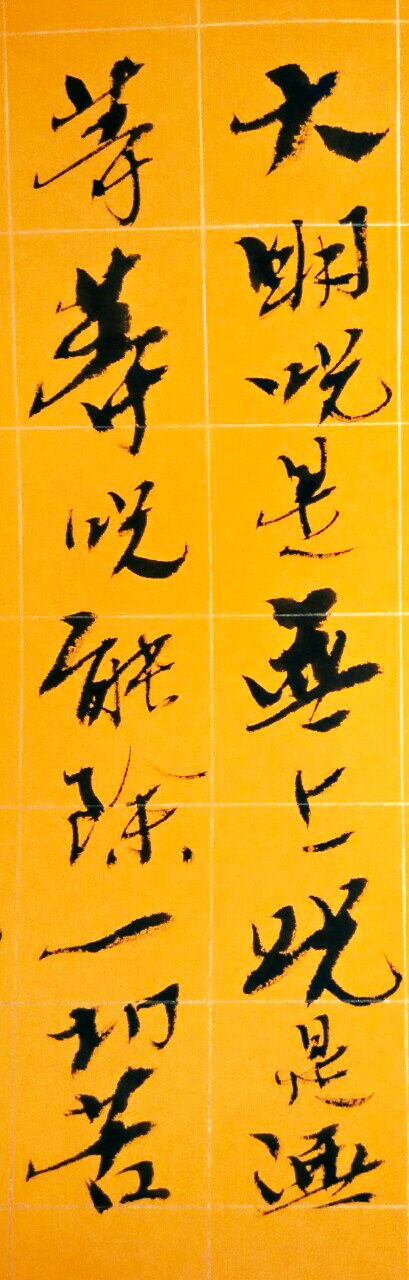 大明咒是無上咒是無
等等咒能除一切苦